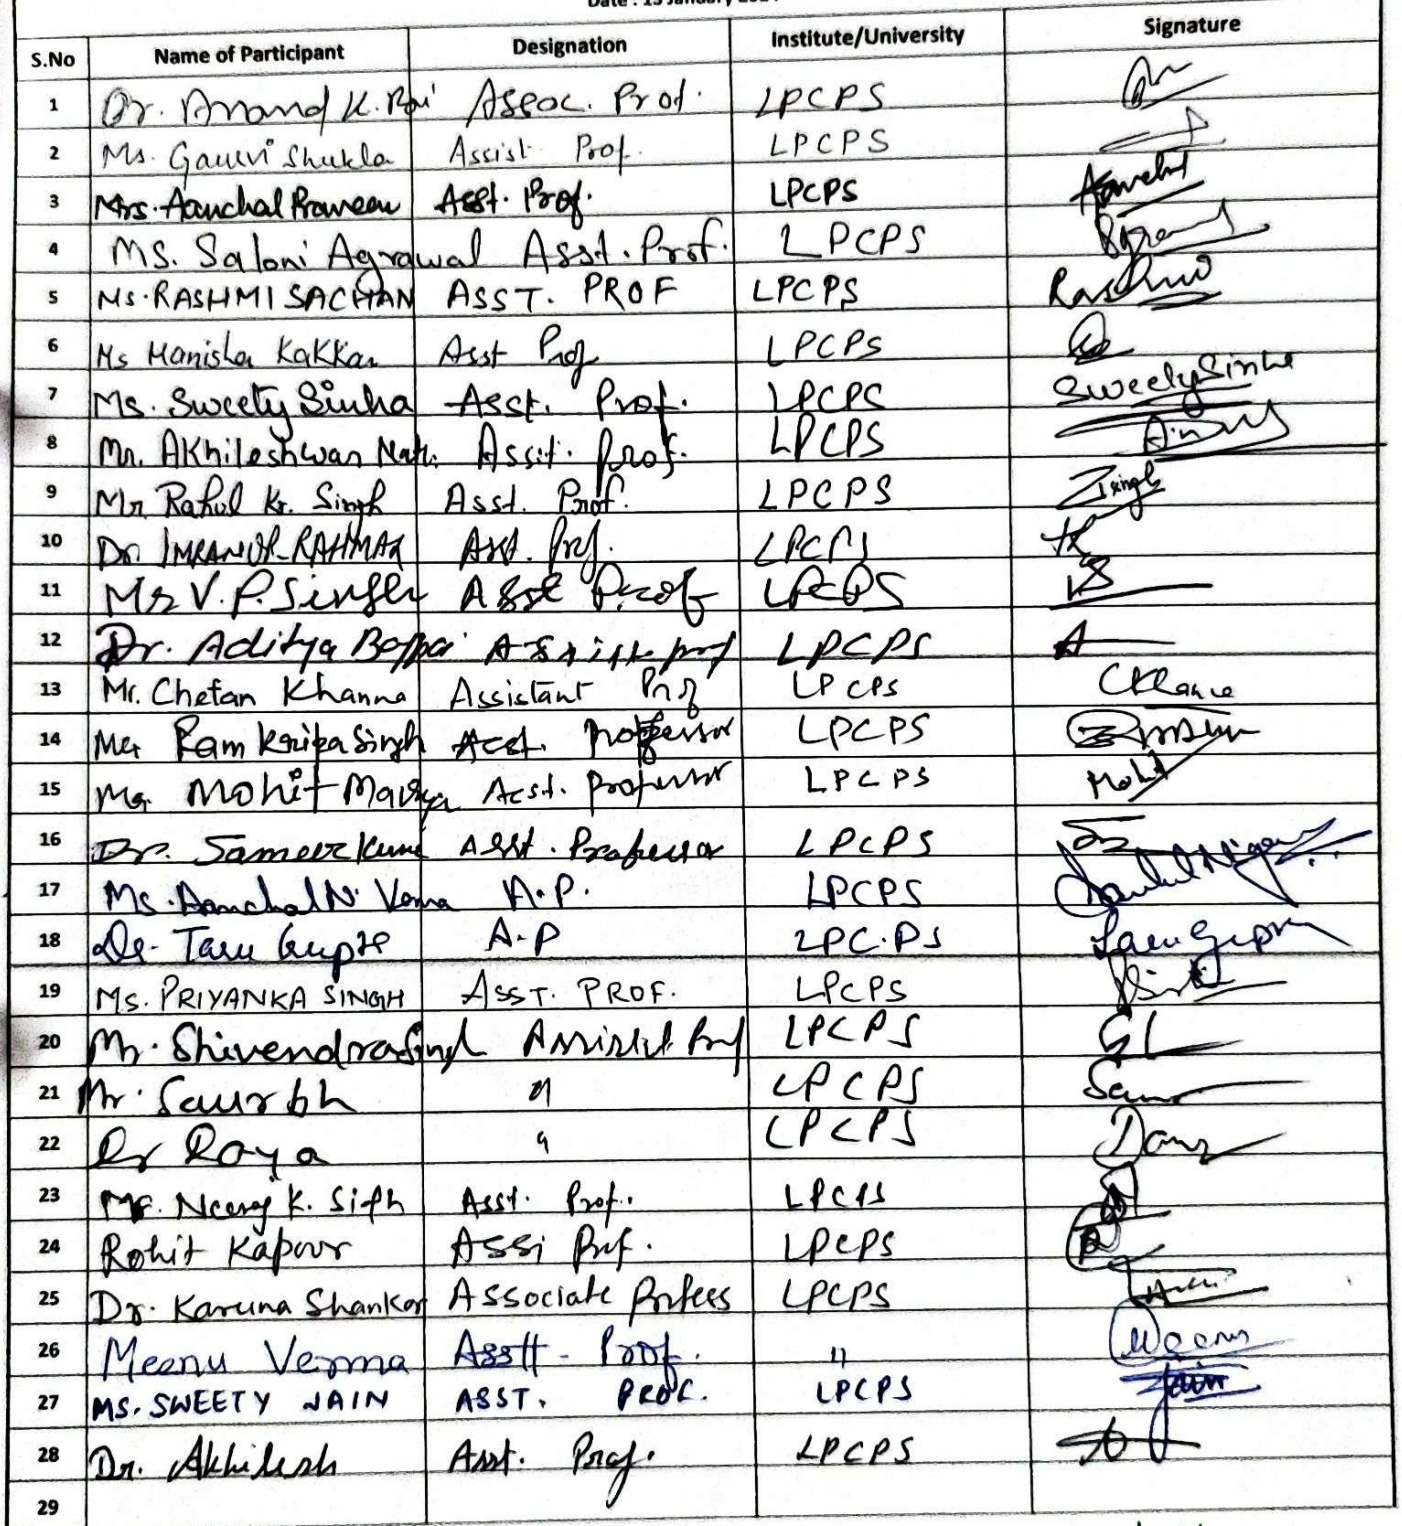 S.No Name of Participant Designation Institute/University Signature
1 Dr. Anand K. Rai Assoc. Prof. LPCPS
2 Ms. Gaurvi Shukla Assist Prof. LPCPS
3 Mrs. Aanchal Praveen Asst. Prof. LPCPS
4 MS. Saloni Agrawal Asst. Prof. LPCPS
5 MS. RASHMI SACHAN ASST. PROF LPCPS Rashmi
6 Ms Manisha Kakkar Asst Prof LPCPS
7 Ms. Sweety Sinha Asst. Prof. LPCPS Sweety Sinha
8 Mr. Akhileshwar Nath Asstt. Prof. LPCPS
9 Mr Rahul Kr. Singh Asst. Prof. LPCPS
10 Dr. IMRANUR RAHMAN Asst. Prof. LPCPS
11 Mr V. P. Singh Asst Prof LPCPS
12 Dr. Aditya Bajpai Assistt prof LPCPS
13 Mr. Chetan Khanna Assistant Prof LPCPS
14 Mr Ram Kripa Singh Asst. Professor LPCPS
15 Mr Mohit Maurya Asst. Professor LPCPS Mohit
16 Dr. Sameer Kumar Asst. Professor LPCPS
17 Ms. Aanchal N. Verma A.P. LPCPS
18 Dr. Taru Gupta A.P LPC.PS Taru Gupta
19 MS. PRIYANKA SINGH ASST. PROF. LPCPS
20 Mr. Shivendra Singh Assistat Prof LPCPS
21 Mr. Saurbh " LPCPS
22 Dr Daya " LPCPS
23 Mr. Neeraj K. Sigh Asst. Prof. LPCPS
24 Rohit Kapoor Assi Prof. LPCPS
25 Dr. Karuna Shankar Associate LPCPS
26 Meenu Verma Asstt - Prof. " Meenu
27 MS. SWEETY JAIN ASST. PROF. LPCPS Jain
28 Dr. Akhilesh Asst. Prof. LPCPS
29